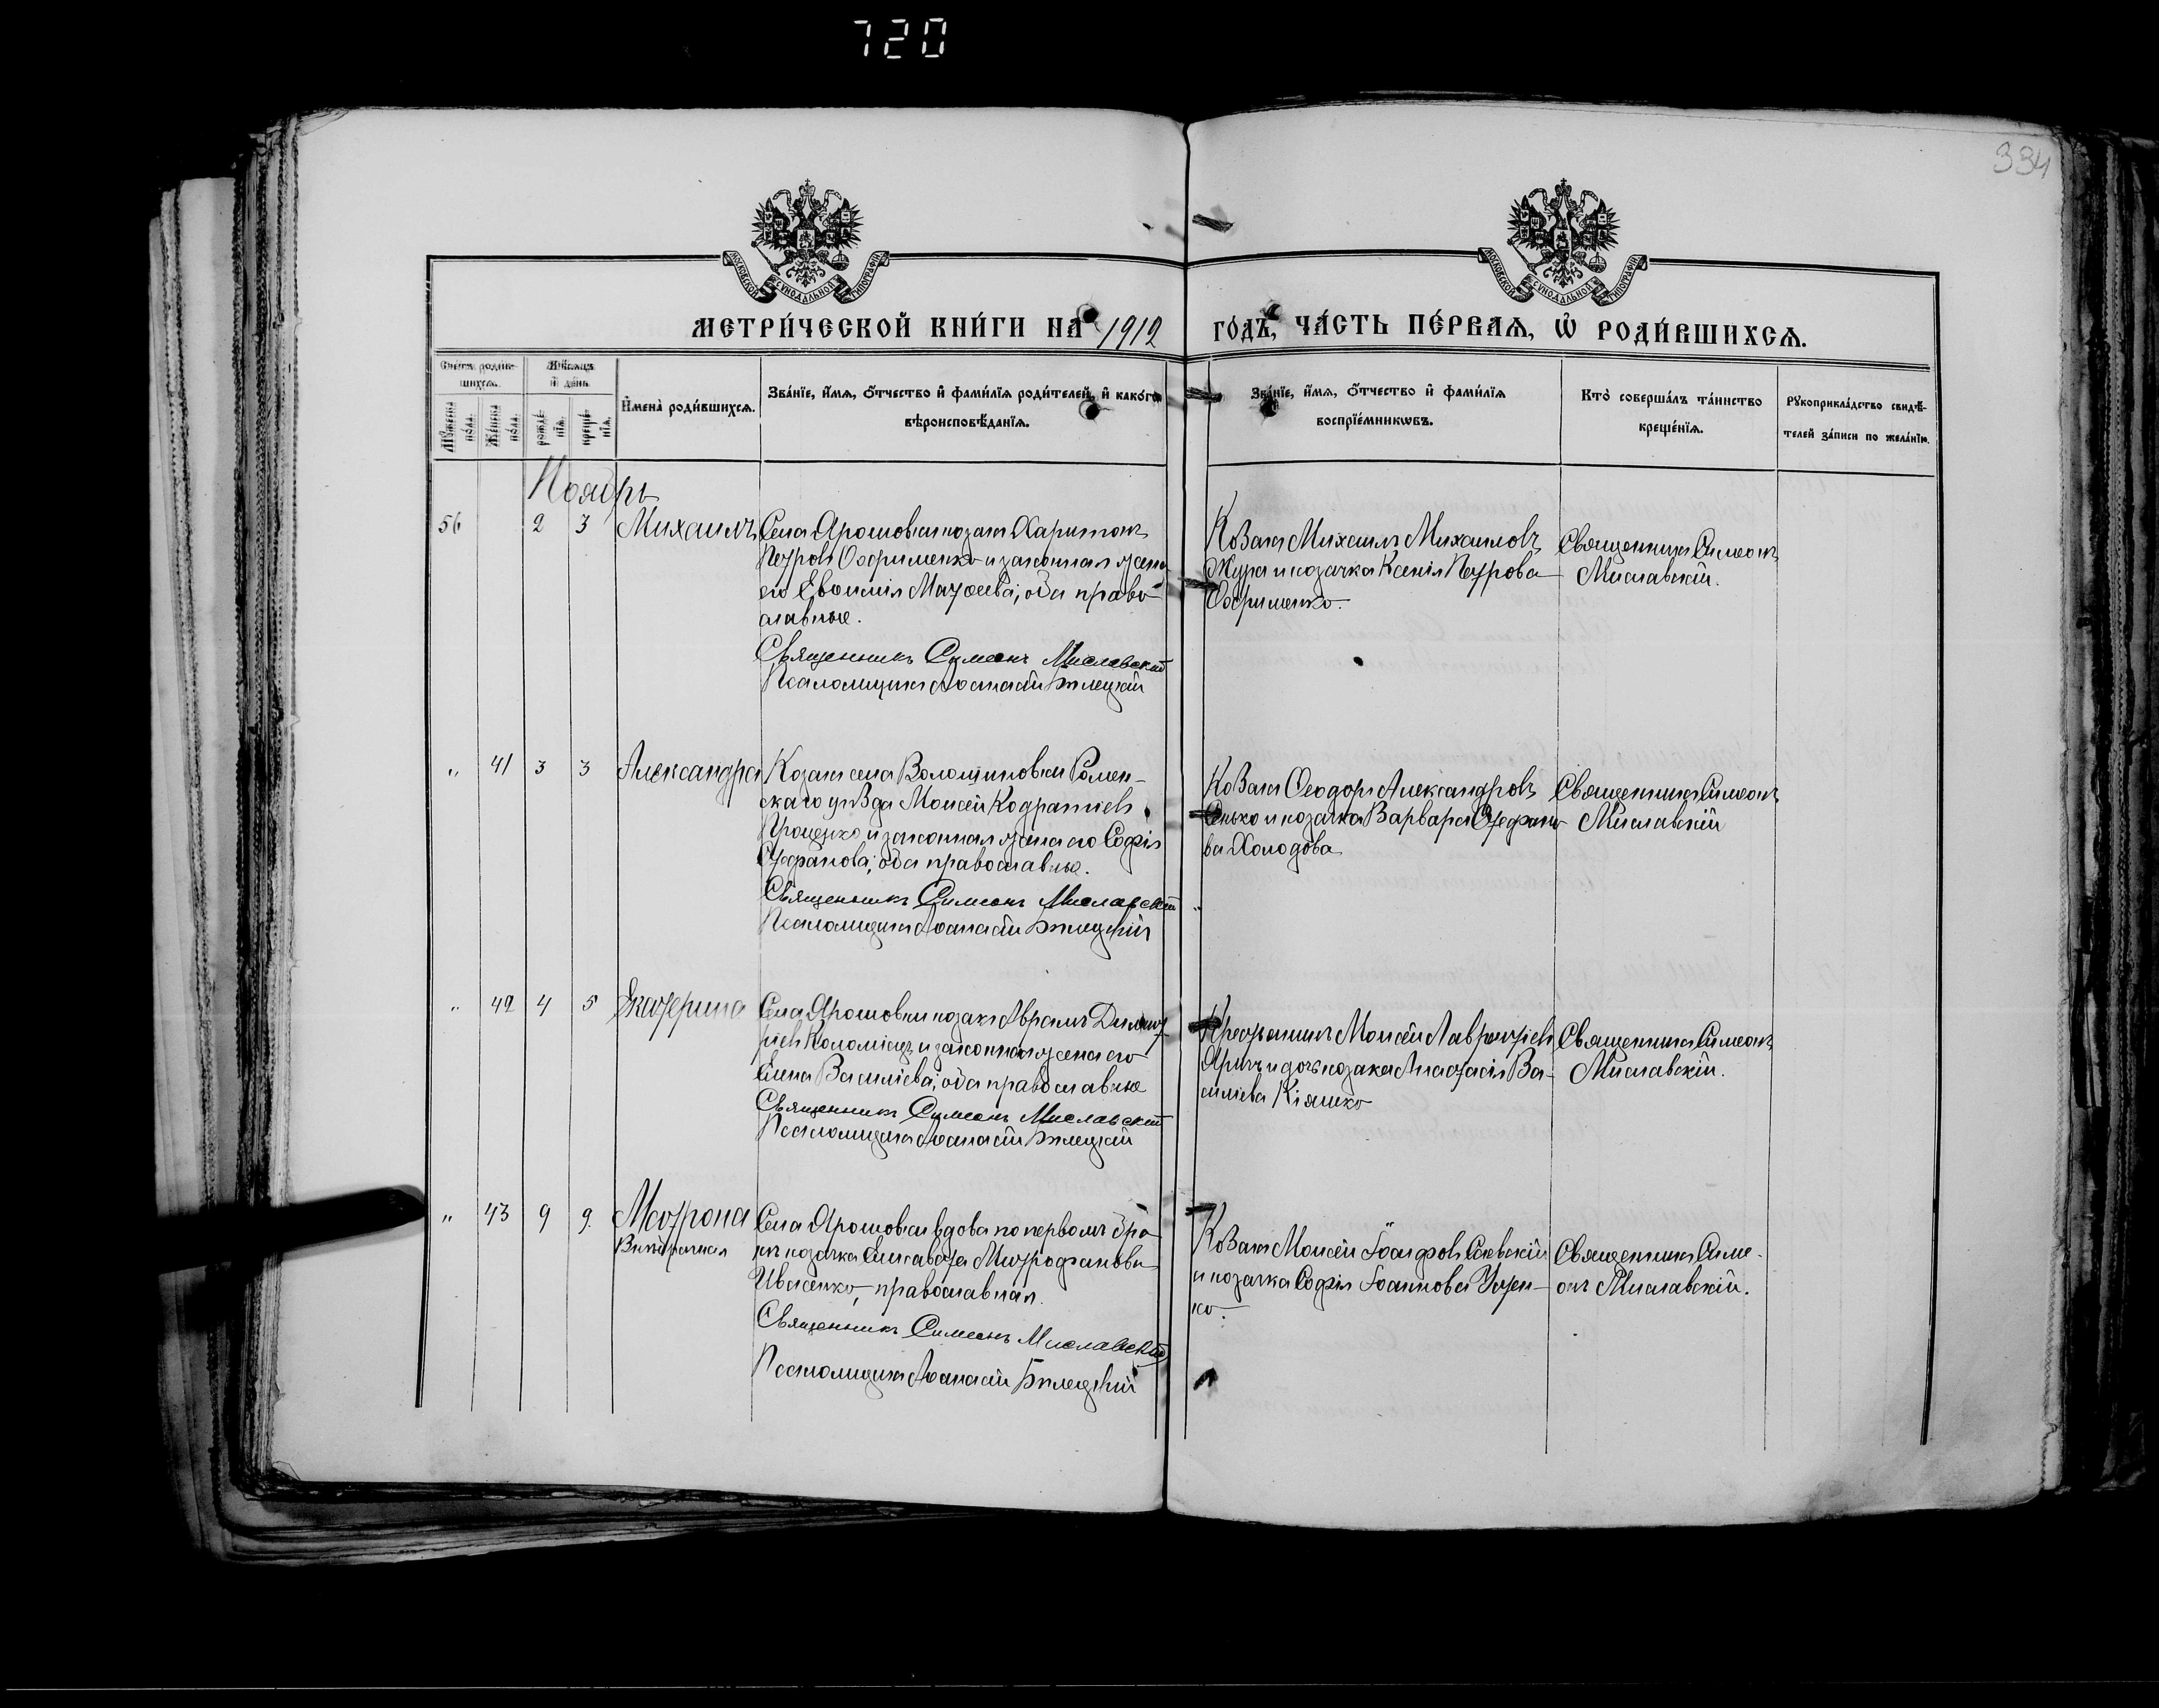 720
334
МОСКОВСКОЙ СѴНОДАЛЬНОЙ ТИПОГРАФІИ
МОСКОВСКОЙ СѴНОДАЛЬНОЙ ТИПОГРАФІИ
МЕТРИ́ЧЕСКОЙ КНИ́ГИ НА 1912 ГО́ДЪ, ЧА́СТЬ ПЕ́РВАѦ, Ѡ҆ РОДИ́ВШИХСѦ.
Сче́тъ роди́в-
шихсѧ.
Мѣ́сяцъ
и҆ де́нь
Му́жеска по́ла.
Же́нска по́ла.
рожде́-
нїѧ.
креще́-
нїѧ.
И҆мена̀ роди́вшихсѧ.
Зва́нїе, и҆́мѧ, ѻ҆́тчество и҆ фами́лїѧ роди́телей, и҆ како́гѡ
вѣроисповѣ́данїѧ.
Зва́нїе, и҆́мѧ, ѻ҆́тчество и҆ фами́лїѧ
воспрїе́мникѡвъ.
Кто̀ соверша́лъ та́инство
креще́нїѧ.
Рꙋкоприкла́дство свидѣ́-
телей за́писи по жела́нїю.
Ноябрь
56 2 3 Михаилъ
Села Ярошовки козакъ Харитонъ
Петровъ Охрименко и законная жена
его Евѳимія Матѳеева; оба право-
славные.
Священникъ Симеонъ Миславскій
Псаломщикъ Аѳанасій Бѣлецкій
Козакъ Михаилъ Михаиловъ
Жура и козачка Ксенія Петрова
Охрименко.
Священникъ Симеонъ
Миславскій.
" 41 3 3 Александра
Козакъ села Волошиновки Ромен-
скаго уѣзда Моисей Кодратіевъ
Проценко и законная жена его Софія
Стефанова; оба православные.
Священникъ Симеонъ Миславскій
Псаломщикъ Аѳанасій Бѣлецкій
Козакъ Ѳеодоръ Александровъ
Сенько и козачка Варвара Стефано-
ва Холодова
Священникъ Симеонъ
Миславскій
" 42 4 5 Екатерина
Села Ярошовки козакъ Аврамъ Димит-
ріевъ Коломіецъ и законная жена его
Елена Василіева; оба православные
Священникъ Симеонъ Миславскій
Псаломщикъ Аѳанасій Бѣлецкій
Крестьянинъ Моисей Лаврентіевъ
и дочь козака Анастасія Ва-
силіева Кіяшко
Священникъ Симеонъ
Миславскій.
" 43 9 9. Матрона
Внѣбрачная
Села Ярошовки вдова по первомъ бра-
кѣ козачка Елисавета Митрофанова
Ивасенко, православная.
Священникъ Симеонъ Миславскій
Псаломщикъ Аѳанасій Бѣлецкій
Козакъ Моисей
и козачка Софія Іоаннова
ко.
Священникъ Симе-
онъ Миславскій.